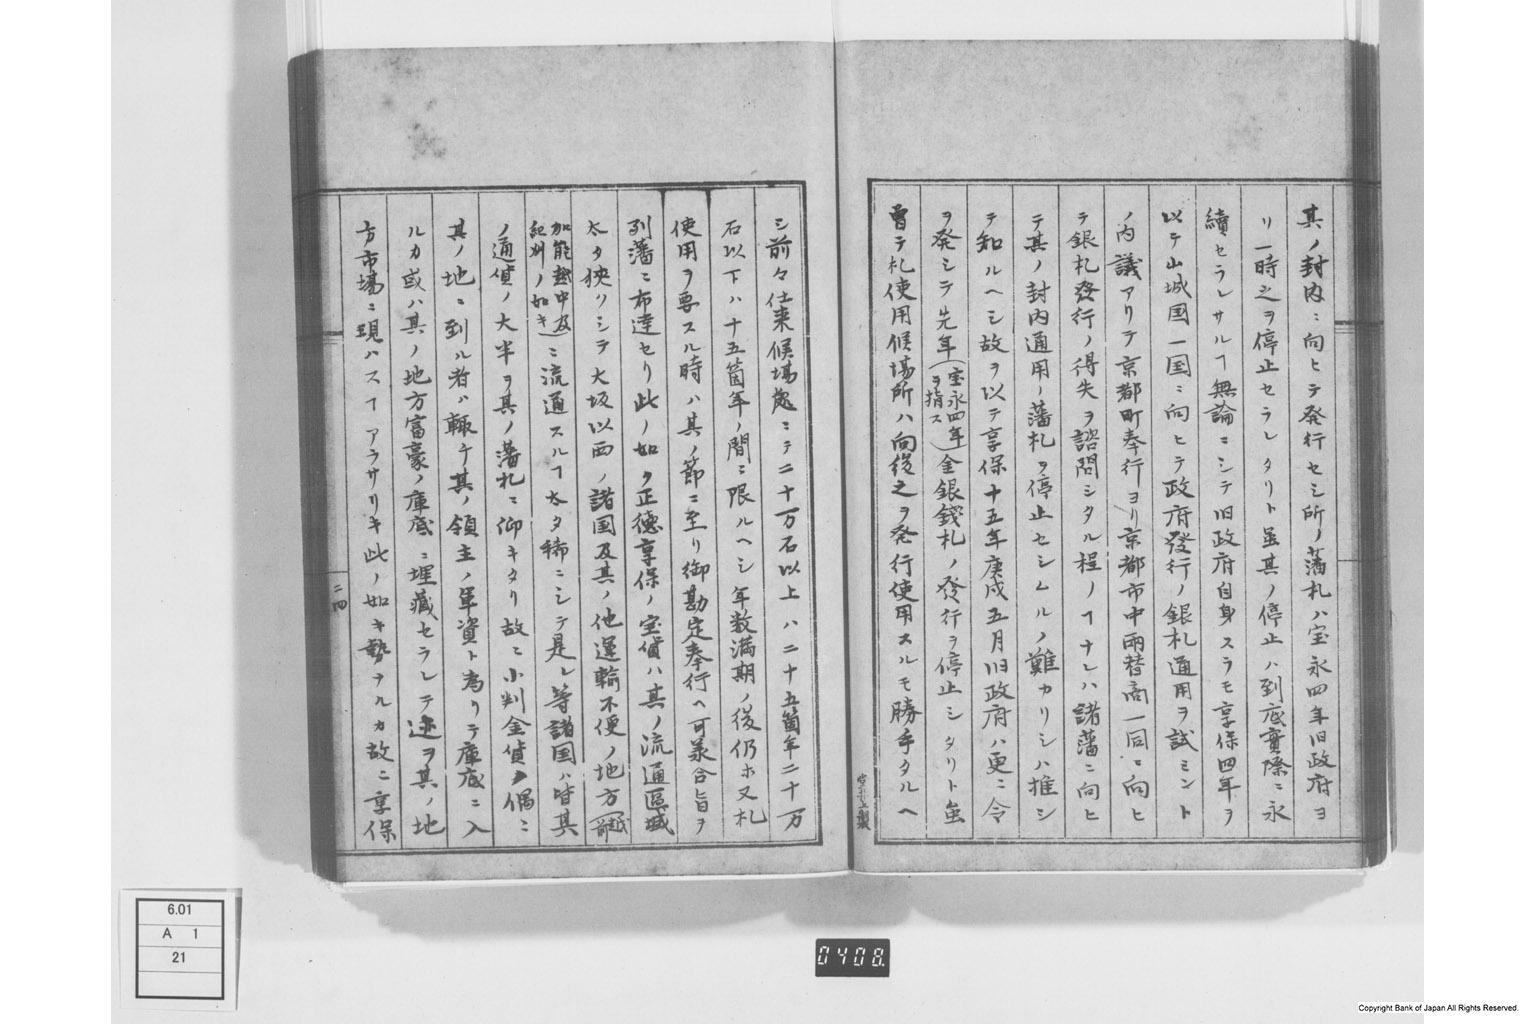 其ノ封内ニ向ヒテ発行セシ所ノ藩札ハ宝永四年旧政府ヨ
リ一時之ヲ停止セラレタリト虽其ノ停止ハ到底實際ニ永
續セラレサルヿ無論ニシテ旧政府自身スラモ享保四年ヲ
以テ山城国一国ニ向ヒテ政府發行ノ銀札通用ヲ試ミント
ノ内議アリテ京都町奉行ヨリ京都市中両替商一同ニ向ヒ
テ銀札發行ノ得失ヲ諮問シタル程ノヿナレハ諸藩ニ向ヒ
テ其ノ封内通用ノ藩札ヲ停止セシムルノ難カリシハ推シ
テ知ルヘシ故ヲ以テ享保十五年庚戌五月旧政府ハ更ニ令
ヲ発シテ先年(宝永四年ヲ指ス)金銀錢札ノ發行ヲ停止シタリト虽
曽テ札使用候場所ハ向後之ヲ発行使用スルモ勝手タルヘ
シ前々仕来候場處ニテ二十万石以上ハ二十五箇年二十万
石以下ハ十五箇年ノ間ニ限ルヘシ年数満期ノ後仍ホ又札
使用ヲ要スル時ハ其ノ節ニ至リ御勘定奉行ヘ可羕合旨ヲ
列藩ニ布達セリ此ノ如ク正徳享保ノ宝貨ハ其ノ流通區域
太タ狹リシテ大坂以西ノ諸国及其ノ他運輸不便ノ地方(越前
加能越中及紀州ノ如キ)ニ流通スルヿ太タ稀ニシテ是レ等諸国ハ皆其
ノ通貨ノ大半ヲ其ノ藩札ニ仰キタリ故ニ小判金貨ノ偶ニ
其ノ地ニ到ル者ハ輙チ其ノ領主ノ軍資ト為リテ庫底ニ入
ルカ或ハ其ノ地方富豪ノ庫底ニ埋藏セラレテ迹ヲ其ノ地
方市場ニ現ハスヿアラサリキ此ノ如キ勢ナルカ故ニ享保
二四
6.01
A 1
21
0408.
Copyright Bank of Japan All Rights Reserved.